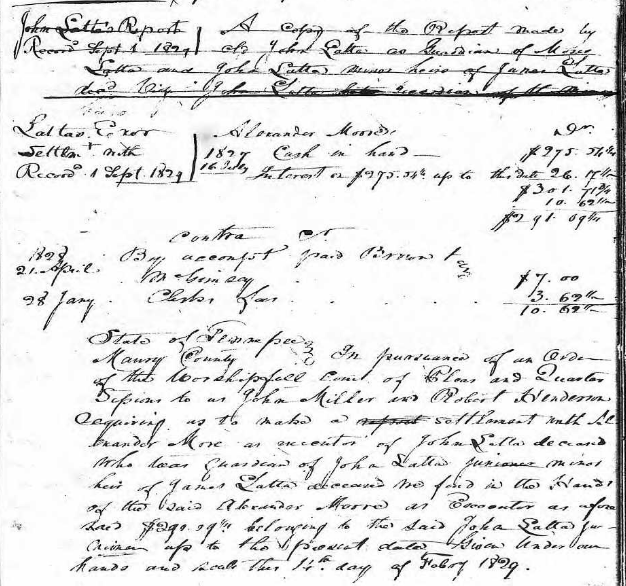 John Latta's Report A copy of the Report made by
Record Sept 1 1829 old John Latta as Guardian of Moses
Latta and John Latta minor heirs of James Latta
decd Viz John Latta guardian of the
Lattas Exor Alexander Moore Dr.
Settlmt with 1827 Cash in hand $275. 54
Record 1 Sept. 1829 16 July Interest on $275.54 up to this date 26. 17
$301. 71
10. 62
$291. 09
Contra Cr
1828
21. April. By accompt paid Brown &
McGimsey $7. 00
28 Jany Clerks fees 3. 62
10. 62
State of Tennessee
Maury County In pursuance of an Order
of the Worshipfull Court of Pleas and Quarter
Sessions to us John Miller and Robert Henderson
requiring us to make a report settlement with Al-
exander More as executor of John Latta deceased
Who was guardian of John Latta Juniour minor
heir of James Latta deceased We find in the Hands
of the said Alexander Moore as Executor as afore
said $291.09 belonging to the said John Latta Ju-
niour up to the present date Given Under our
hands and seals this 14th day of Febry 1829.